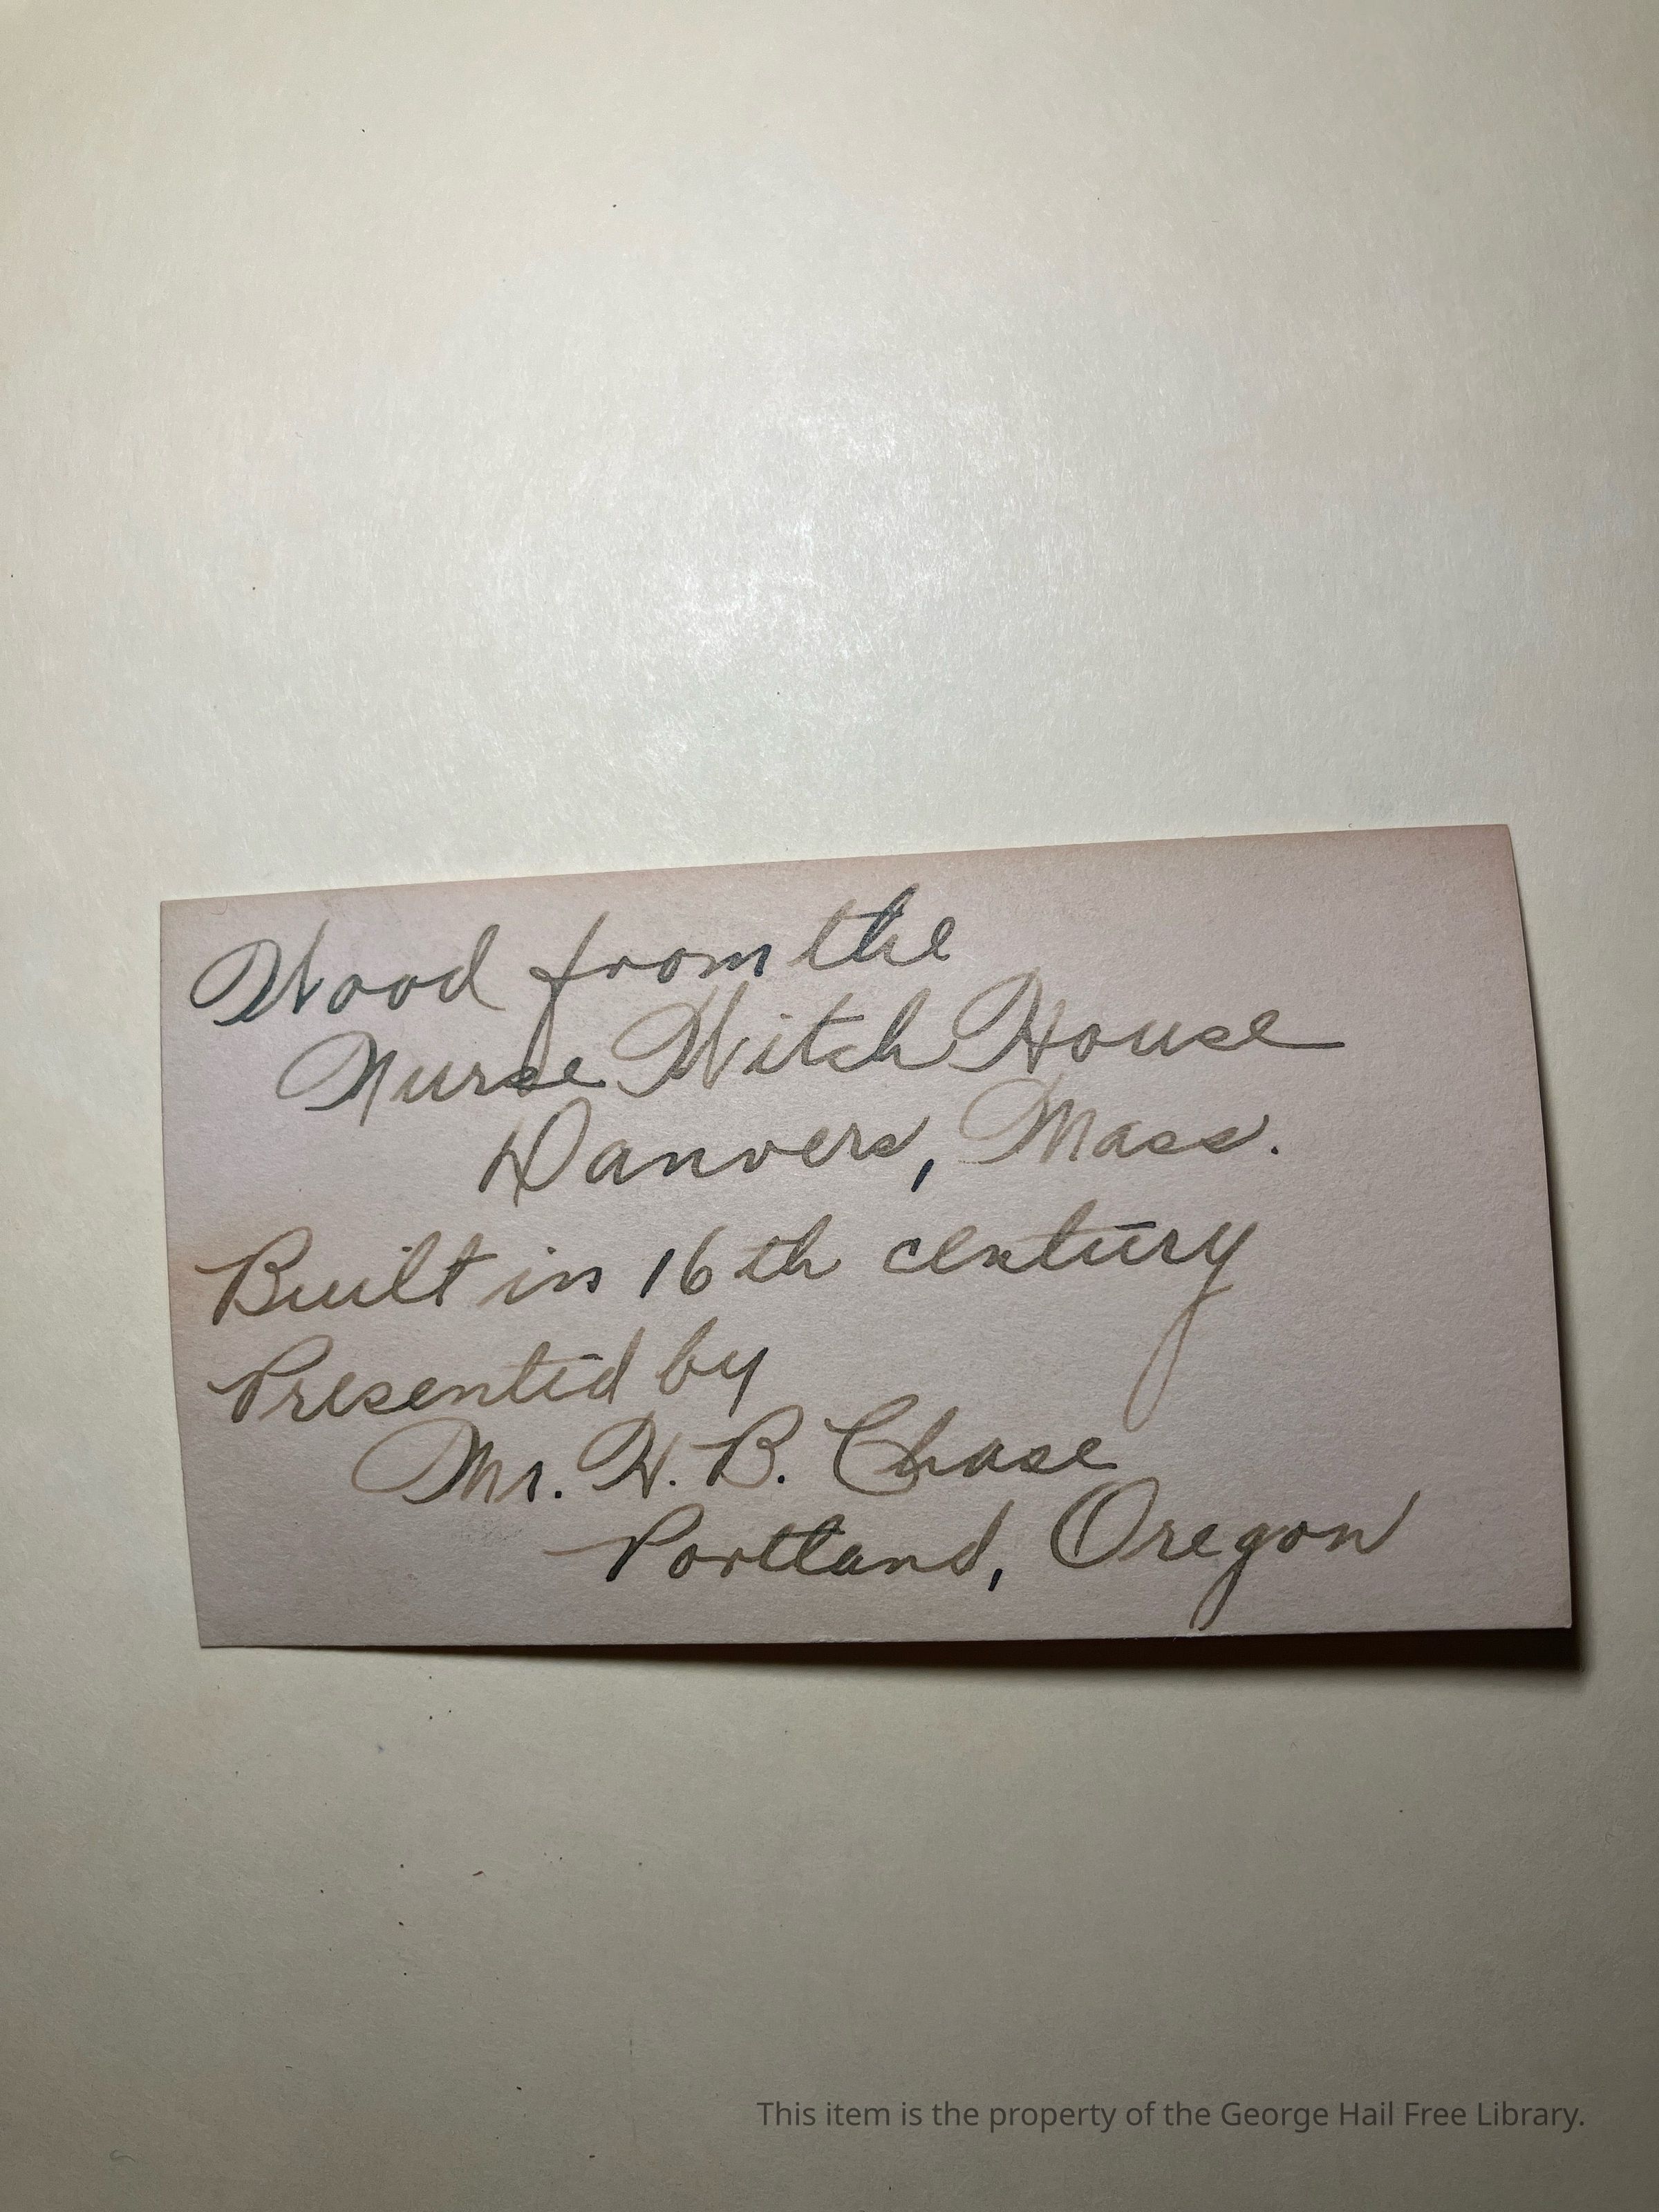 Wood from the
Nurse Witch House
Danvers, Mass.
Built in 16th century
Presented by
Mr. W. B. Chase
Portland, Oregon
This item is the property of the George Hail Free Library.